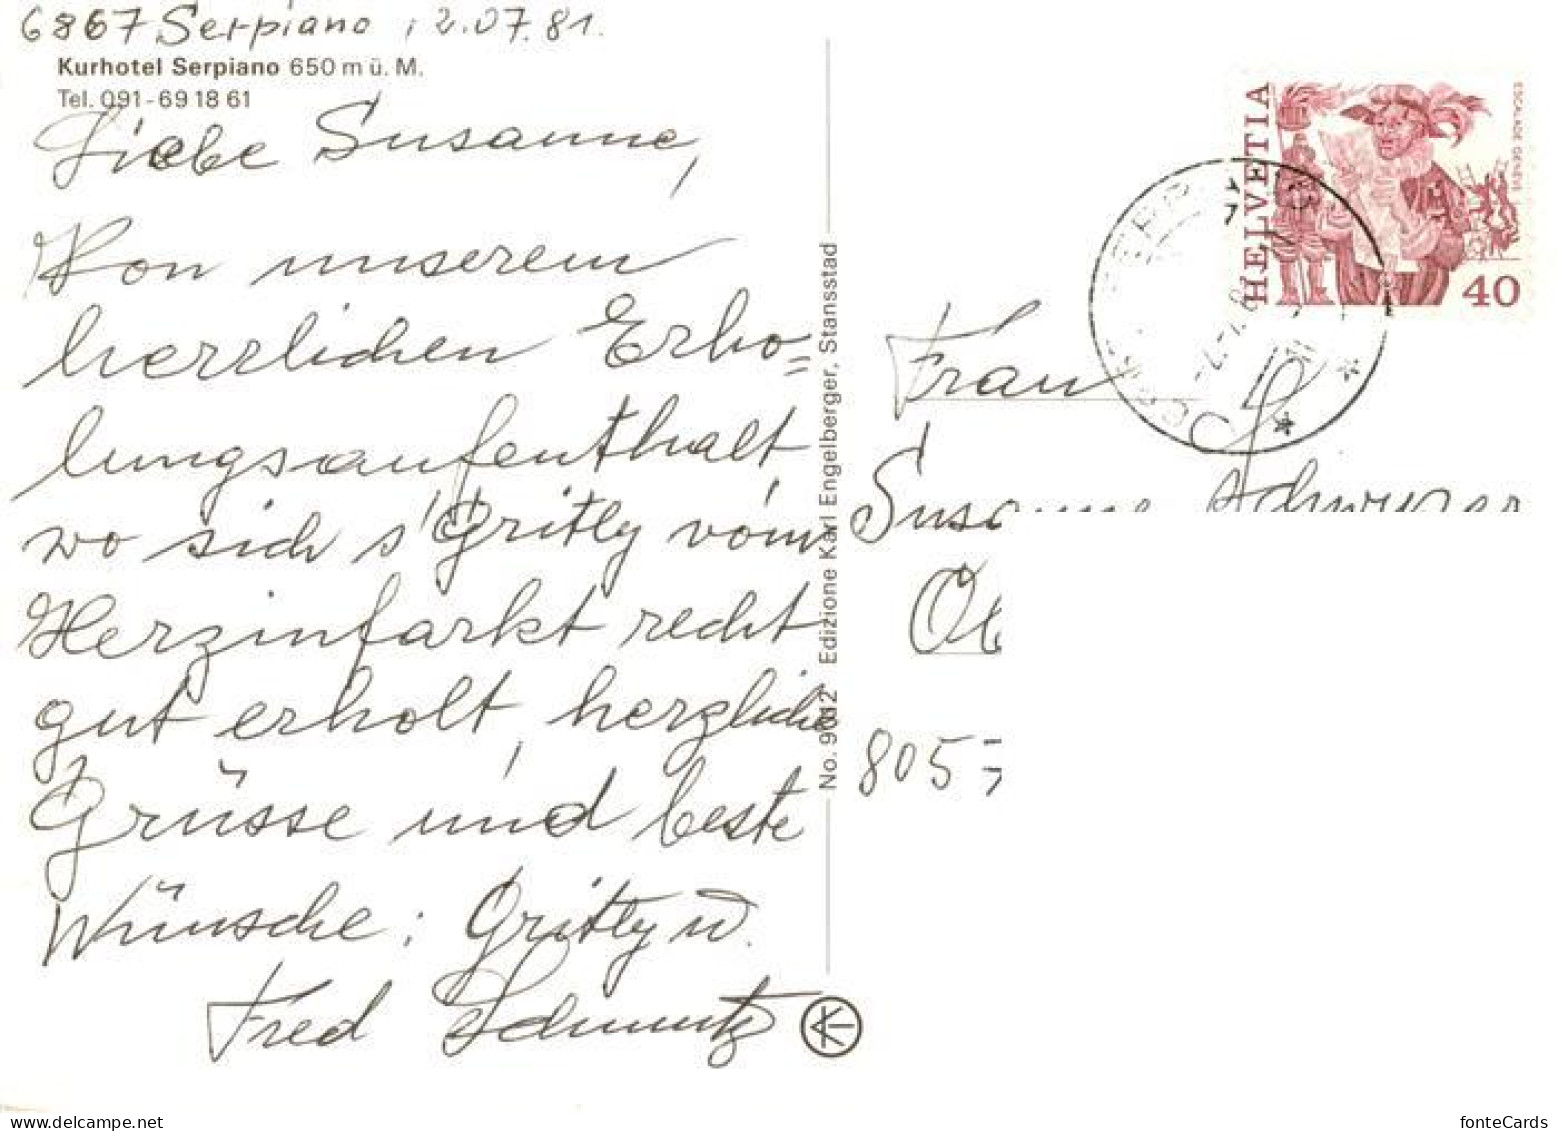 6867 Serpiano, 2.07.81.
Kurhotel Serpiano 650 m ü. M.
Tel. 091-69 18 61
Liebe Susanne,
Von unserem
herrlichen Erho=
lungsaufenthalt
wo sich s'Gritly vom
Herzinfarkt recht
gut erholt, herzliche
Grüsse und beste
Wünsche: Gritly u.
Fred Schmutz
No. 9612 Edizione Karl Engelberger, Stansstad
HELVETIA
ESCALADE GENÈVE
40
Frau
Susanne
805
fonteCards
www.delcampe.net